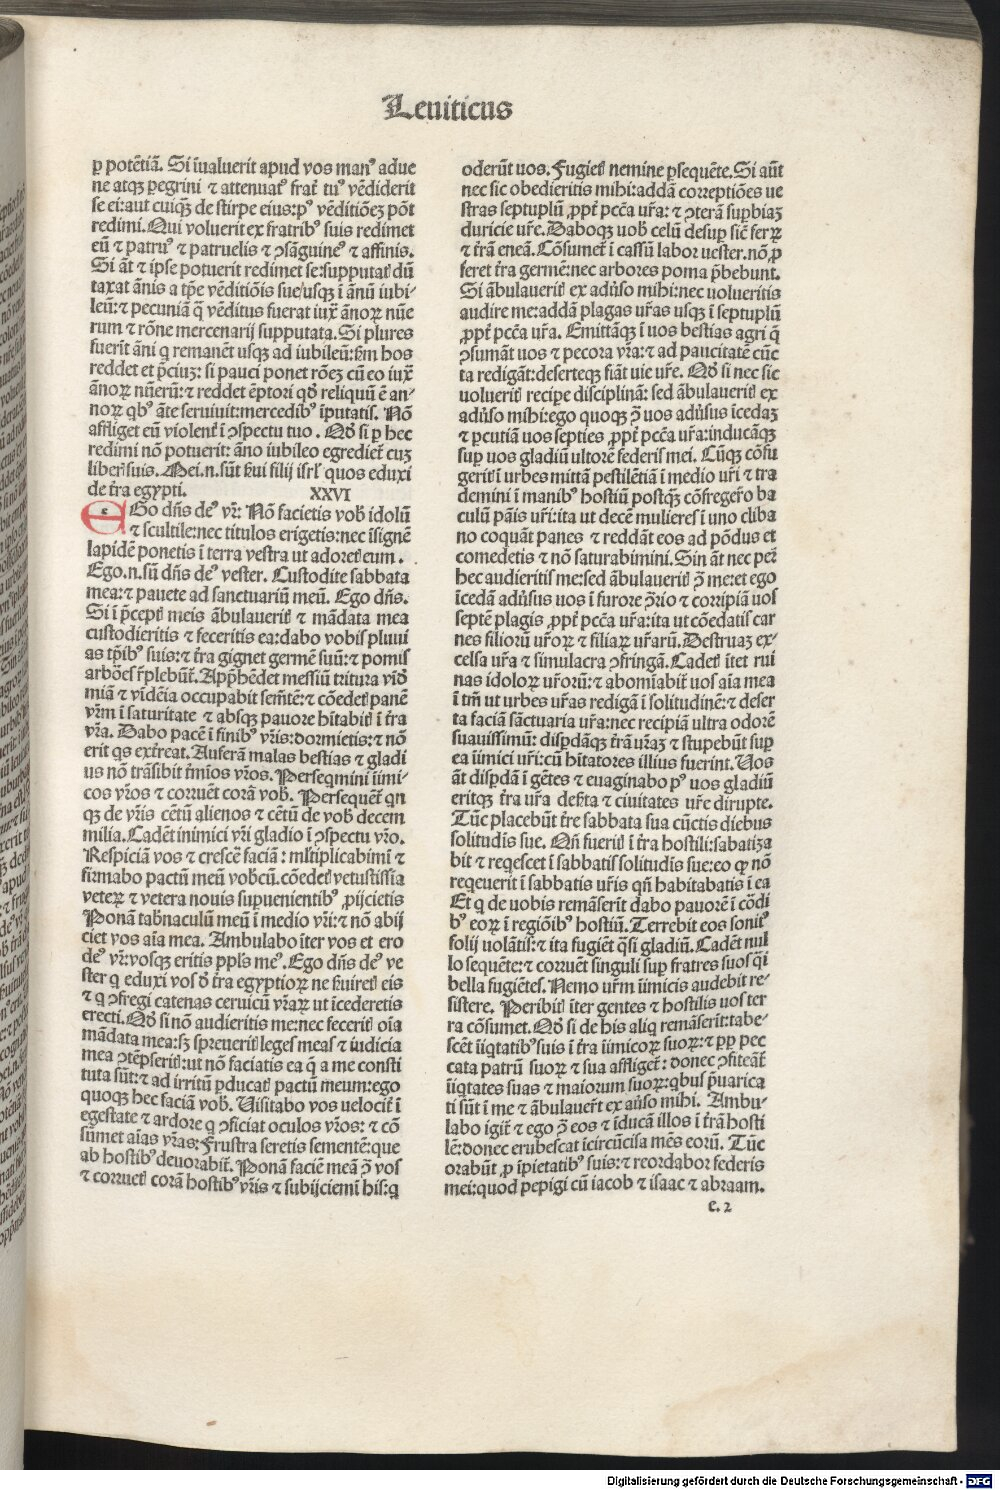 Leuiticus
ꝑ potẽtiã. Si ĩualuerit apud vos man⁹ adue
ne atqꝫ ꝑegrini ⁊ attenuat⁹ frat̃ tu⁹ vẽdiderit
se ei:aut cuiqꝫ de stirpe eius:p⁹ vẽditiõeꝫ põt
redimi. Qui voluerit ex fratrib⁹ suis redimet
eũ ⁊ patru⁹ ⁊ patruelis ⁊ ꝯsãguine⁹ ⁊ affinis.
Si ãt ⁊ ipse potuerit redimet se:supputat dũ
taxat ãnis a tp̃e vẽditiõis sue/usqꝫ ĩ ãnũ iubi-
leũ: ⁊ pecuniã q̃ vẽditus fuerat iux̃ ãnoꝝ nũe
rum ⁊ rõne mercenarij supputata. Si plures
fuerĩt ãni q remanẽt usqꝫ ad iubileũ:ẜm hos
reddet et p̃ciuꝫ: si pauci ponet rõeꝫ cũ eo iux̃
ãnoꝝ nũerũ:⁊ reddet ẽptori qd̃ reliquũ ẽ an-
noꝝ qb⁹ ãte seruiuit:mercedib⁹ ĩputatis. Nõ
affliget eũ violent̃ ĩ ꝯspectu tuo. Qd̃ si ꝑ hec
redimi nõ potuerit: ãno iubileo egrediet̃ cuꝫ
liber̃ suis. Mei.n.sũt ẜui filij isrł quos eduxi
de t̃ra egypti. XXVI
EGo dñs de⁹ vr̃: Nõ facietis vob̃ idolũ
⁊ scultile:nec titulos erigetis:nec ĩsignẽ
lapidẽ ponetis ĩ terra vestra ut adoret eum.
Ego.n.sũ dñs de⁹ vester. Custodite sabbata
mea:⁊ pauete ad sanctuariũ meũ. Ego dñs.
Si ĩ p̃cept meis ãbulauerit ⁊ mãdata mea
custodieritis ⁊ feceritis ea:dabo vobis pluui
as tp̃ib⁹ suis:⁊ t̃ra gignet germẽ suũ:⁊ pomis
arbões r̃plebũt̃. Appħẽdet messiũ tritura vĩd
miã ⁊ vĩdẽia occupabit semẽtẽ:⁊ cõedet panẽ
vr̃m ĩ saturitate ⁊ absqꝫ pauore hĩtabit ĩ t̃ra
vr̃a. Dabo pacẽ ĩ finib⁹ vr̃is:dormietis:⁊ nõ
erit qs ext̃reat. Auferã malas bestias ⁊ gladi
us nõ trãsibit t̃mios vr̃os. Perseqmini ĩimi-
cos vr̃os ⁊ corruẽt corã vob̃. Persequẽt̃ qn
qꝫ de vr̃is cẽtũ alienos ⁊ cẽtũ de vob̃ decem
milia. Cadẽt inimici vr̃i gladio ĩ ꝯspectu vr̃o.
Respiciã vos ⁊ crescẽ faciã: ml̃tiplicabimĩ ⁊
firmabo pactũ meũ vob̃cũ.cõedet vetustissĩa
veteꝝ ⁊ vetera nouis supuenientib⁹ ꝓijcietis
Ponã tabñaculũ meũ ĩ medio vr̃i:⁊ nõ abij
ciet vos aĩa mea. Ambulabo ĩter vos et ero
de⁹ vr̃:vosqꝫ eritis ppls me⁹. Ego dñs de⁹ ve
ster q eduxi vos d̃ t̃ra egyptioꝝ ne ẜuiret eis
⁊ q ꝯfregi catenas ceruicũ vr̃aꝝ ut ĩcederetis
erecti. Qd̃ si nõ audieritis me:nec fecerit oĩa
mãdata mea:sꝫ spreuerit leges meas ⁊ iudicia
mea ꝯtẽpserit:ut nõ faciatis ea q̃ a me consti
tuta sũt:⁊ ad irritũ ꝑducat pactũ meum:ego
quoqꝫ hec faciã vob̃. Uisitabo vos uelocit̃ ĩ
egestate ⁊ ardore q ꝯficiat oculos vr̃os: ⁊ cõ
sũmet aĩas vr̃as: Frustra seretis sementẽ:que
ab hostib⁹ deuorabit̃. Ponã faciẽ meã ꝯ̃ vos
⁊ corruet corã hostib⁹ vr̃is ⁊ subijciemĩ his:q
oderũt uos. Fugiet nemine ꝑsequẽte. Si aũt
nec sic obedieritis mihi:addã correptiões ue
stras septuplũ ꝓpt̃ pc̃ca ur̃a: ⁊ ꝯterã supbiaꝫ
duricie ur̃e. Daboqꝫ uob̃ celũ desup sic̃ ferꝝ
⁊ t̃rã eneã. Cõsumet̃ ĩ cassũ labor uester.nõ ꝓ
feret t̃ra germẽ:nec arbores poma p̃bebunt.
Si ãbulauerit ex adũso mihi:nec uolueritis
audire me:addã plagas ur̃as usqꝫ ĩ septuplũ
ꝓpt̃ pc̃ca ur̃a. Emittãqꝫ ĩ uos bestias agri q̃
ꝯsumãt uos ⁊ pecora vr̃a:⁊ ad paucitatẽ cũc
ta redigãt:deserteqꝫ fiãt uie ur̃e. Qd̃ si nec sic
uoluerit recipe disciplinã: sed ãbulauerit ex
adũso mihi:ego quoqꝫ ꝯ̃ uos adũsus ĩcedaꝫ
⁊ ꝑcutiã uos septies ꝓpt̃ pc̃ca ur̃a:inducãqꝫ
sup uos gladiũ ultorẽ federis mei. Cũqꝫ cõfu
gerit ĩ urbes mittã pestilẽtiã ĩ medio ur̃i ⁊ tra
demini ĩ manib⁹ hostiũ postqꝫ cõfreger̃o ba
culũ pãis ur̃i:ita ut decẽ mulieres ĩ uno cliba
no coquãt panes ⁊ reddãt eos ad põdus et
comedetis ⁊ nõ saturabimini. Sin ãt nec per̃
hec audieritis me:sed ãbulauerit ꝯ̃ me:et ego
ĩcedã adũsus uos ĩ furore ꝯ̃rio ⁊ corripiã uos
septẽ plagis ꝓpt̃ pc̃ca ur̃a:ita ut cõedatis car
nes filiorũ ur̃oꝝ ⁊ filiaꝝ ur̃arũ. Destruaꝫ ex-
celsa ur̃a ⁊ simulacra ꝯfringã. Cadet ĩtet rui
nas idoloꝝ ur̃orũ:⁊ abomĩabit̃ uos aĩa mea
ĩ tm̃ ut urbes ur̃as redigã ĩ solitudinẽ:⁊ deser
ta faciã sãctuaria ur̃a:nec recipiã ultra odorẽ
suauissimũ: disꝑdãqꝫ t̃rã ur̃aꝫ ⁊ stupebũt sup
ea ĩimici ur̃i:cũ hĩtatores illius fuerint. Uos
ãt disꝑdã ĩ gẽtes ⁊ euaginabo p⁹ uos gladiũ
eritqꝫ t̃ra ur̃a deẜta ⁊ ciuitates ur̃e dirupte.
Tũc placebũt t̃re sabbata sua cũctis diebus
solitudĩs sue. Qñ fuerit ĩ t̃ra hostili:sabatiꝫa
bit ⁊ reqescet ĩ sabbatis solitudĩs sue:eo ꝙ nõ
reqeuerit ĩ sabbatis ur̃is qñ habitabatis ĩ ea
Et q de uobis remãserĩt dabo pauorẽ ĩ cõdi
b⁹ eoꝝ ĩ regiõib⁹ hostiũ. Terrebit eos sonit⁹
folij uolãtis:⁊ ita fugiẽt q̃si gladiũ. Cadẽt nul
lo sequẽte:⁊ corruẽt singuli sup fratres suos q̃i
bella fugiẽtes. Nemo ur̃m ĩimicis audebit re-
sistere. Peribit ĩter gentes ⁊ hostilis uos ter
ra cõsumet. Qd̃ si de his aliq remãserĩt:tabe-
scẽt ĩiqtatib⁹ suis ĩ t̃ra ĩimicoꝝ suoꝝ:⁊ ꝓp̃ pec
cata patrũ suoꝝ ⁊ sua affliget̃: donec ꝯfiteãt̃
ĩiqtates suas ⁊ maiorum suoꝝ:qbus p̃uarica
ti sũt ĩ me ⁊ ãbulauer̃t ex aũso mihi. Ambu-
labo igit̃ ⁊ ego ꝯ̃ eos ⁊ ĩducã illos ĩ t̃rã hosti
lẽ:donec erubescat ĩcircũcisa mẽs eorũ. Tũc
orabũt ꝓ ĩpietatib⁹ suis:⁊ reordabor federis
mei:quod pepigi cũ iacob ⁊ isaac ⁊ abraam.
e.2
Digitalisierung gefördert durch die Deutsche Forschungsgemeinschaft - DFG